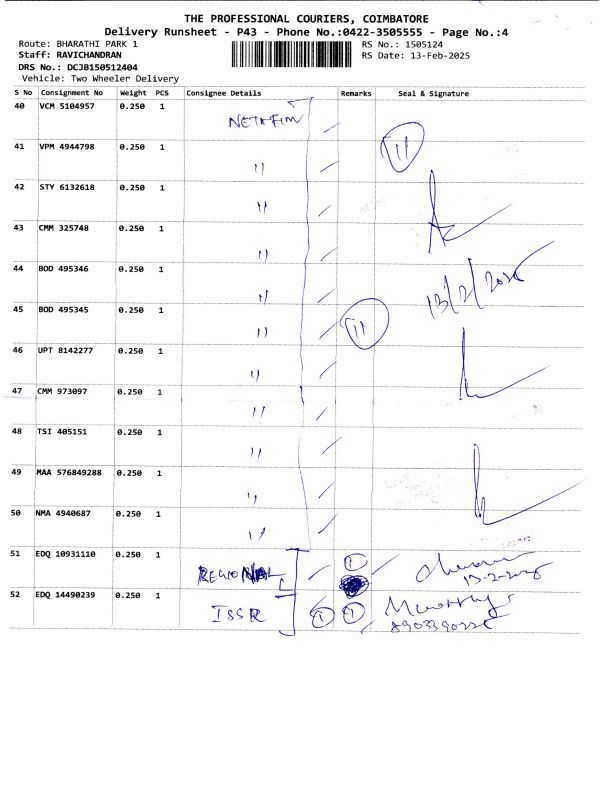 THE PROFESSIONAL COURIERS, COIMBATORE
Delivery Runsheet - P43 - Phone No.:0422-3505555 - Page No.:4
Route: BHARATHI PARK 1
RS No.: 1505124
Staff: RAVICHANDRAN
RS Date: 13-Feb-2025
DRS No.: DCJB150512404
Vehicle: Two Wheeler Delivery
S No Consignment No Weight PCS Consignee Details Remarks Seal & Signature
40 VCM 5104957 0.250 1 NETAFIM
41 VPM 4944798 0.250 1 " 11
42 STY 6132618 0.250 1 "
43 CMM 325748 0.250 1 "
44 BOD 495346 0.250 1 " 13/2/2025
45 BOD 495345 0.250 1 " 11
46 UPT 8142277 0.250 1 "
47 CMM 973097 0.250 1 "
48 TSI 405151 0.250 1 "
49 MAA 576849288 0.250 1 "
50 NMA 4940687 0.250 1 "
51 EDQ 10931110 0.250 1 REGIONAL 1 13-2-2025
52 EDQ 14490239 0.250 1 ISSR 1 1